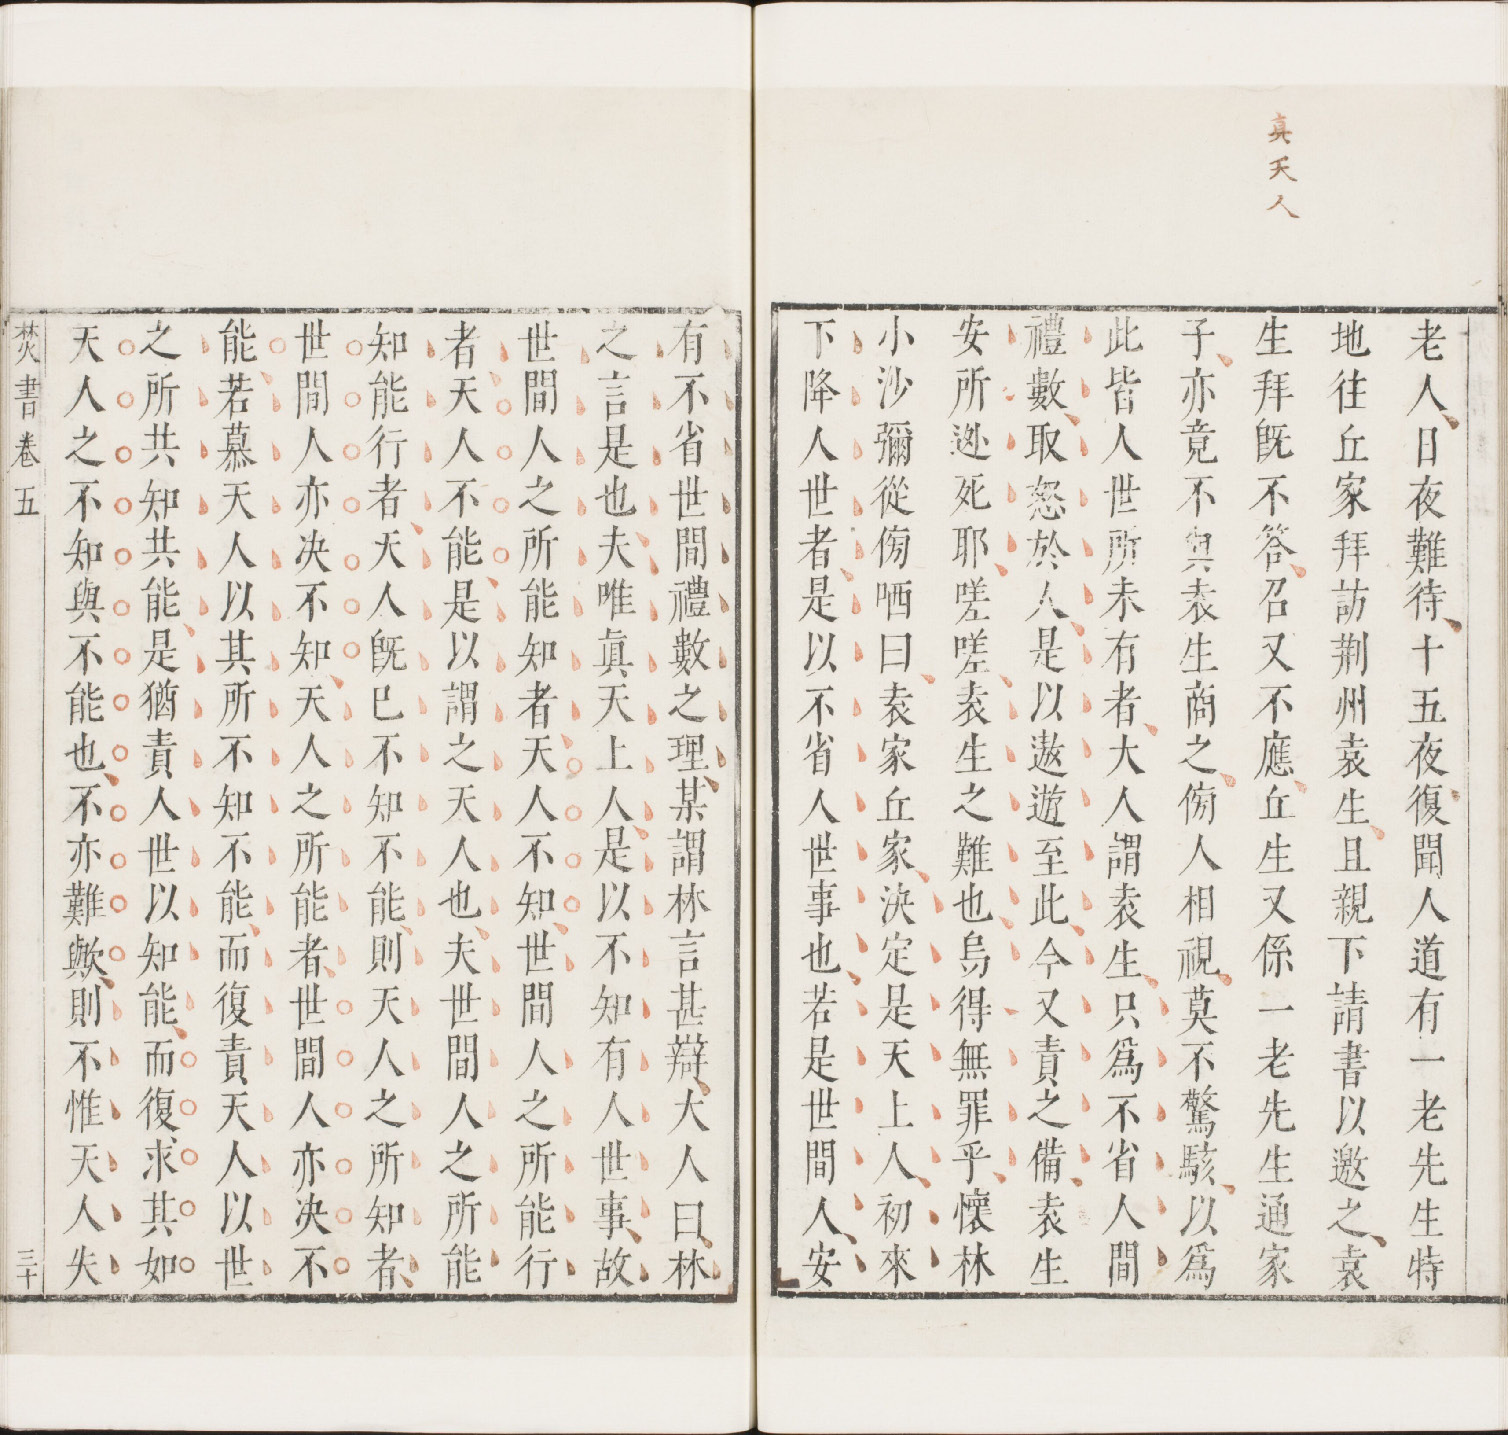 真天人
老人日夜難待十五夜復聞人道有一老先生特
地往丘家拜訪荆州袁生且親下請書以邀之袁
生拜旣不答召又不應丘生又係一老先生通家
子亦竟不與袁生商之傍人相視莫不驚駭以爲
此皆人世所未有者大人謂袁生只爲不省人間
禮數取怒於人是以遨遊至此今又責之備袁生
安所逃死耶嗟嗟袁生之難也烏得無罪乎懷林
小沙彌從傍哂曰袁家丘家決定是天上人初來
下降人世者是以不省人世事也若是世間人安
有不省世間禮數之理某謂林言甚辯大人曰林
之言是也夫唯眞天上人是以不知有人世事故
世間人之所能知者天人不知世間人之所能行
者天人不能是以謂之天人也夫世間人之所能
知能行者天人旣已不知不能則天人之所知者
世間人亦决不知天人之所能者世間人亦决不
能若慕天人以其所不知不能而復責天人以世
之所共知共能是猶責人世以知能而復求其如
天人之不知與不能也不亦難歟則不惟天人失
焚書卷五
三十